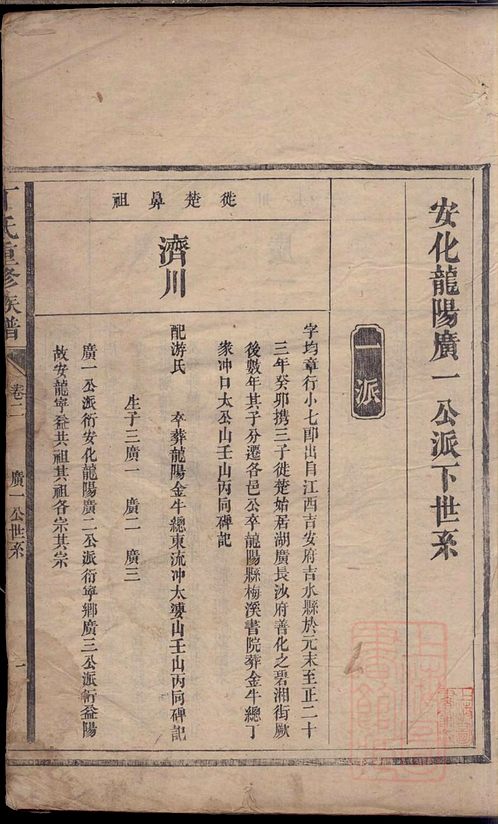 安化龍陽廣一公派下世系
一派
徙楚鼻祖
濟川
字均章行小七郎出自江西吉安府吉水縣於元末至正二十
三年癸卯携三子徙楚始居湖廣長沙府善化之碧湘街厥
後數年其子分遷各邑公卒龍陽縣梅溪書院葬金牛總丁
家冲口太公山壬山丙同碑記
配游氏 卒葬龍陽金牛總東流冲太婆山壬山丙同碑記
生子三廣一 廣二 廣三
廣一公派衍安化龍陽廣二公派衍寧鄉廣三公派衍益陽
故安龍寧益共祖其祖各宗其宗
丁氏重修族譜 卷二 廣一公世系 一